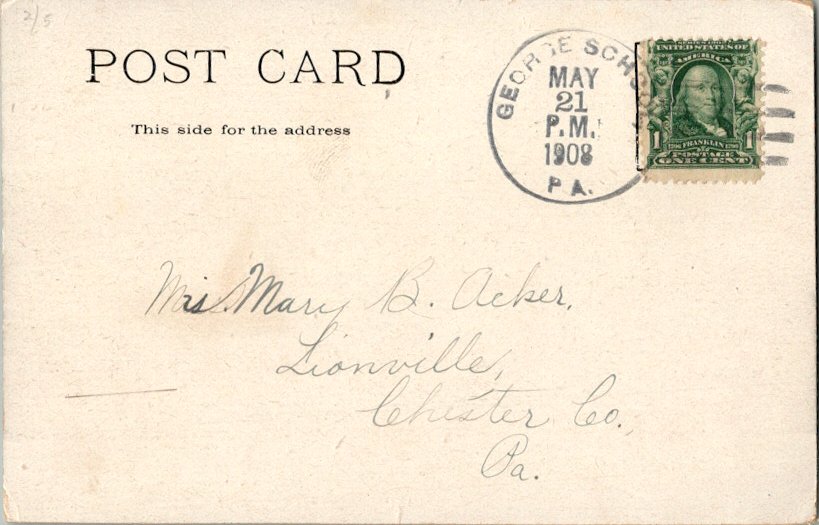 2/5
POST CARD
This side for the address
GEORGE SCHO
MAY
21
P.M.
1908
PA.
UNITED STATES OF
AMERICA
1 FRANKLIN 1
POSTAGE
ONE CENT
Mrs. Mary B. Acker,
Lionville,
Chester Co.,
Pa.